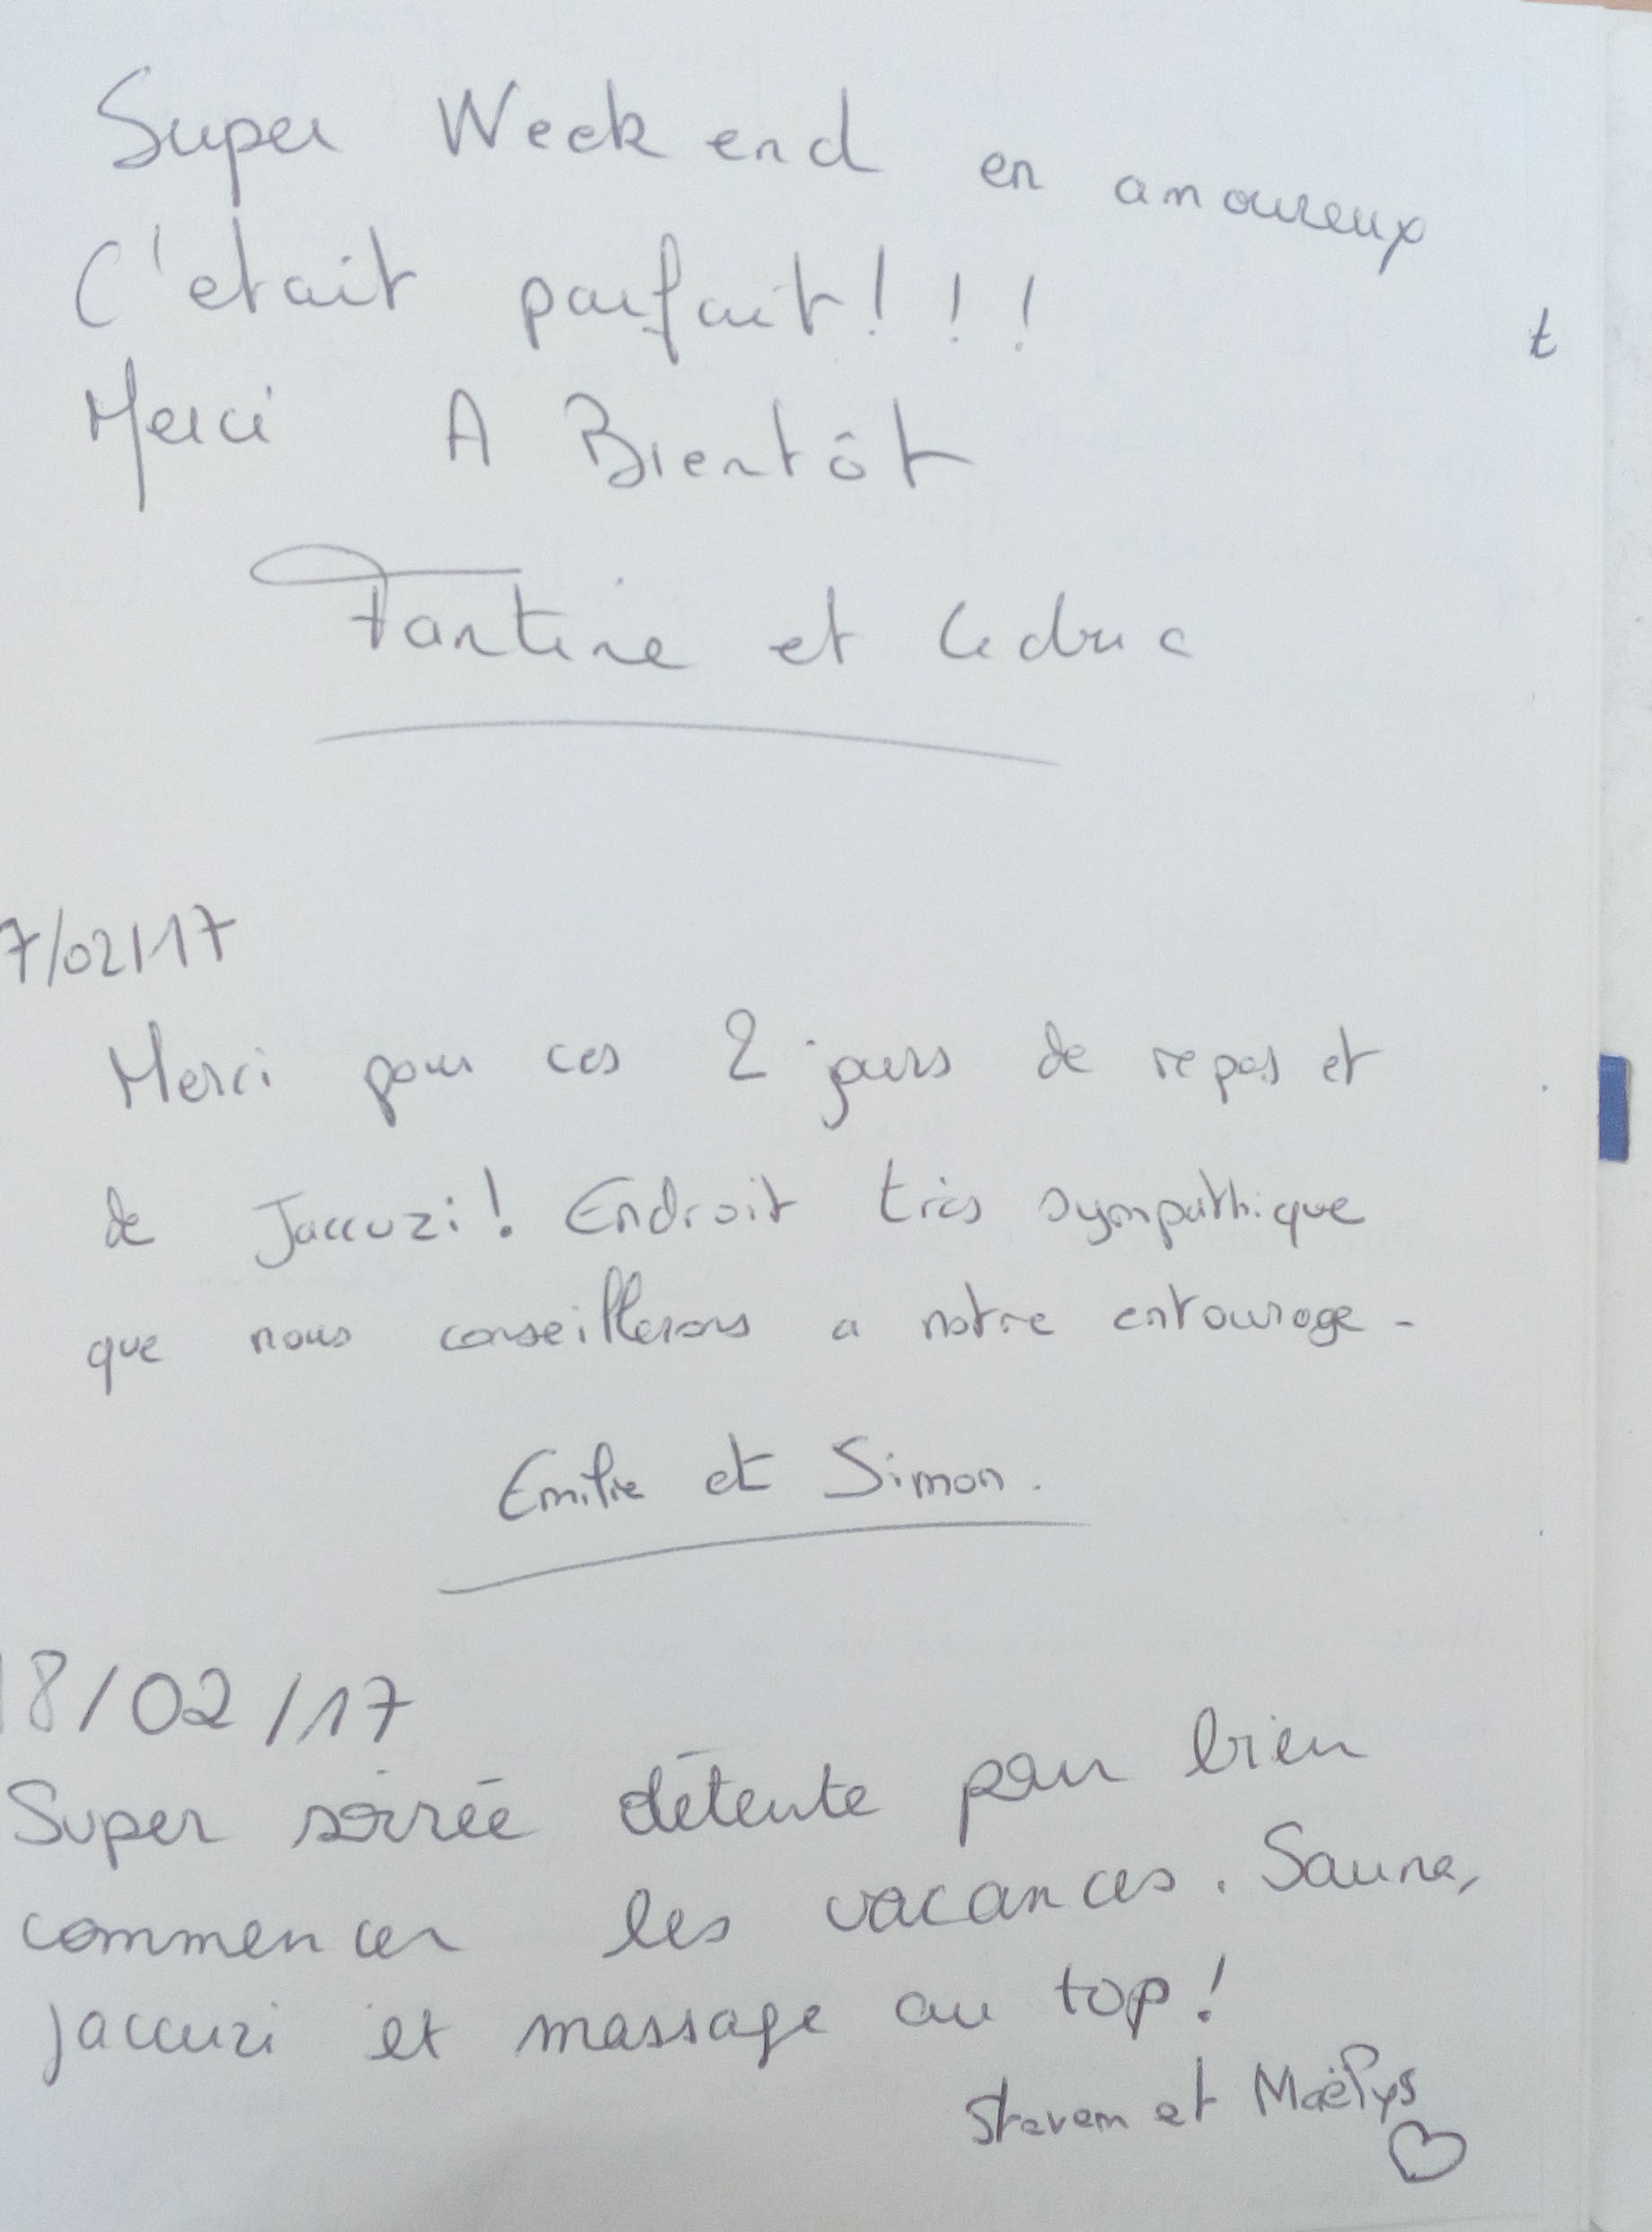 Super Week end en amoureux
C'etait parfait!!!
t
Merci A Bientôt
Fantine et Leduc
7/02/17
Merci pour ces 2 jours de repos et
de Jaccuzi! Endroit très sympathique
que nous conseillerons a notre entourage.
Emilie et Simon.
18/02/17
Super soirée détente pour bien
commencer les vacances. Sauna,
jaccuzi et massage au top!
Steven et Maëlys